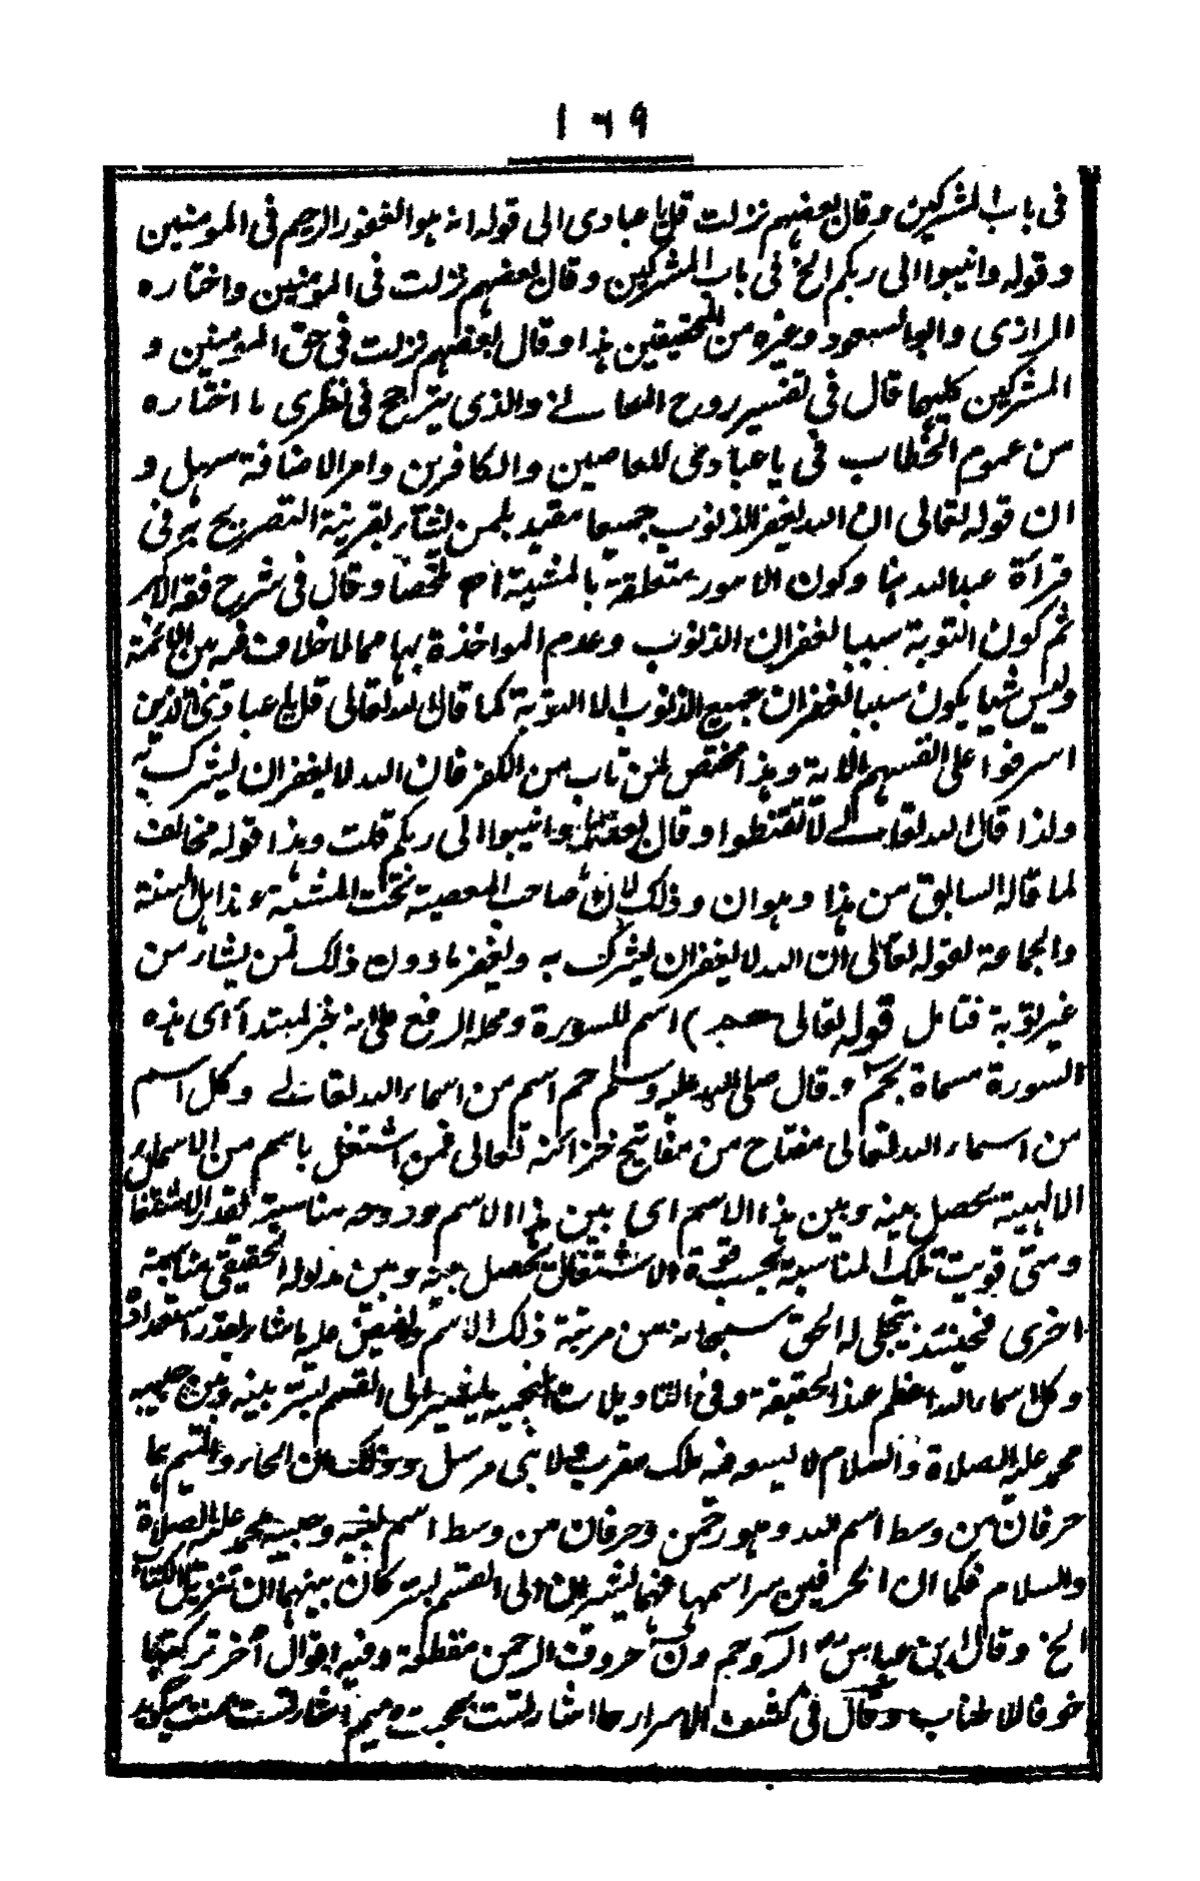 ١٦٩
فى باب المشركين وقال بعضهم نزلت قل يا عبادى الى قوله انه هو الغفور الرحيم فى المومنين
وقوله وانيبوا الى ربكم الخ فى باب المشركين وقال بعضهم نزلت فى المومنين واختاره
الرازى وابوالسعود وغيره من المحققين هذا وقال بعضهم نزلت فى حق المومنين و
المشركين كليهما قال فى تفسير روح المعانے والذى يترجح فى نظرى ما اختاره
من عموم الخطاب فى يا عبادى للعاصين والكافرين وامر الاضافة سهل و
ان قوله تعالى ان الله يغفر الذنوب جميعا مقيد بلمن يشاء بقرينة التصريح به فى
قرأة عبد الله هنا وكون الامور متعلقة بالمشية اھ ملخصا وقال فى شرح فقه الاكبر
ثم كون التوبة سببا لغفران الذنوب وعدم المواخذة بها مما لا خلاف فيه بين الائمة
وليس شيا يكون سببا لغفران جميع الذنوب الا التوبة كما قال الله تعالى قل يا عبادى الذين
اسرفوا على انفسهم الاية وهذا مختص لمن تاب من الكفر فان الله لا يغفر ان يشرك به
ولذا قال الله تعالے لا تقنطوا وقال بعدها وانيبوا الى ربكم قلت وهذا قوله مخالف
لما قاله السابق من هذا وهو ان وذلك لان صاحب المعصية تحت المشية عند اهل السنة
والجماعة لقوله تعالى ان الله لا يغفر ان يشرك به ويغفر ما دون ذلك لمن يشاء من
غير توبة فتامل قوله تعالى حم) اسم للسورة ومحله الرفع على انه خبر لمبتدأ اى هذه
السورة مسماة بحم وقال صلى الله عليه وسلم حم اسم من اسماء الله تعالے وكل اسم
من اسماء الله تعالى مفتاح من مفاتيح خزائنه تعالى فمن اشتغل باسم من الاسماء
الالهية تحصل بينه وبين هذا الاسم اى بين هذا الاسم وروحه مناسبة بقدر الاشتغال
ومتى قويت تلك المناسبة بحسب قوة الاشتغال تحصل بينه وبين مدلوله الحقيقى مناسبة
اخرى فحينئذ يتجلى له الحق سبحانه من مرتبة ذلك الاسم ويفيض عليه ما شاء بقدر استعداده
وكل اسماء الله اعظم عند الحقيقة وفى التاويلات النجمية يشير الى القسم بسر بينه وبين حبيبه
محمد عليه الصلاة والسلام لا يسعه فيه ملك مقرب ولا نبى مرسل وذلك ان الحاء والميم هما
حرفان من وسط اسم الله وهو رحمن وحرفان من وسط اسم نبيه وحبيبه محمد عليه الصلاة
والسلام فكما ان الحرفين سر اسمهما فهما يشيران الى القسم بسر كان بينهما ان تنزيل الكتاب
الخ وقال ابن عباس الر وحم ون حروف الرحمن مقطعة وفيه اقوال أخر تركتها
خوفا للاطناب وقال فى كشف الاسرار حا اشارتست بمحبت وميم اشارتست بمنت ميگويد